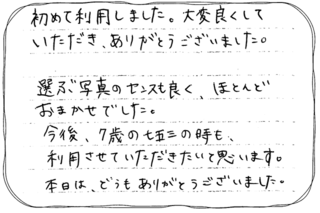 初めて利用しました。大変良くして
いただき、ありがとうございました。
選ぶ写真のセンスも良く、ほとんど
おまかせでした。
今後、7歳の七五三の時も、
利用させていただきたいと思います。
本日は、どうもありがとうございました。